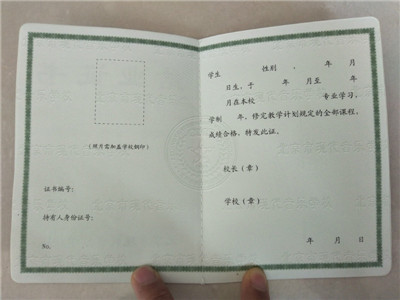 (照片需加盖学校钢印)
证书编号:
持有人身份证号:
No.
学生 性别 , 年 月
日生,于 年 月至 年
月在本校 专业学习,
学制 年,修完教学计划规定的全部课程,
成绩合格,特发此证。
校长(章)
学校(章)
年 月 日